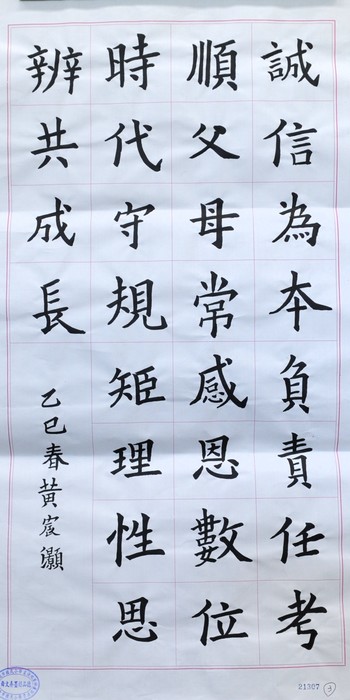 誠信為本負責任考
順父母常感恩數位
時代守規矩理性思
辨共成長
乙巳春黃宸灝
21307 3